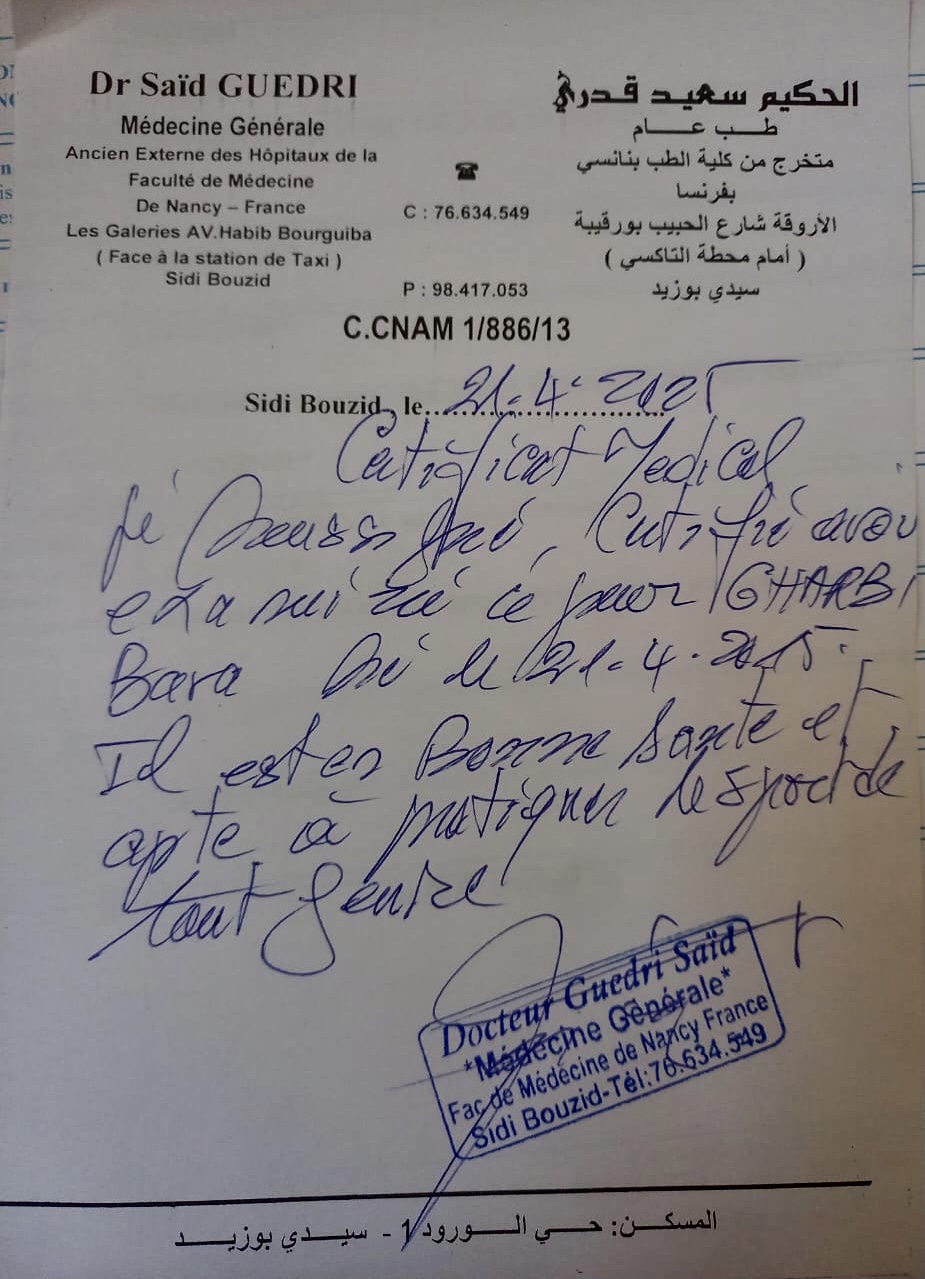 Dr Saïd GUEDRI
Médecine Générale
Ancien Externe des Hôpitaux de la
Faculté de Médecine
De Nancy – France
Les Galeries AV.Habib Bourguiba
( Face à la station de Taxi )
Sidi Bouzid
☎
C : 76.634.549
P : 98.417.053
الحكيم سعيد قدري
طب عام
متخرج من كلية الطب بنانسي
بفرنسا
الأروقة شارع الحبيب بورقيبة
( أمام محطة التاكسي )
سيدي بوزيد
C.CNAM 1/886/13
Sidi Bouzid, le 21-4-2025
Certificat Medical
Je soussigné, Certifié avoir
examiné ce jour GHARBI
Bara Né le 21-4-2015.
Il est en Bonne Santé et
apte à pratiquer le sport de
tout genre
Docteur Guedri Saïd
*Médecine Générale*
Fac de Médecine de Nancy France
Sidi Bouzid-Tél:76.634.549
المسكن: حي الورود 1 - سيدي بوزيد